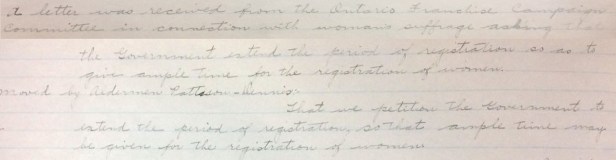 A letter was received from the Ontario Franchise Campaign
Committee in connection with womans suffrage asking that
the Government extend the period of registration so as to
give ample time for the registration of women.
moved by Aldermen Patteson - Dennis:
That we petition the Government to
extend the period of registration, so that ample time may
be given for the registration of women.